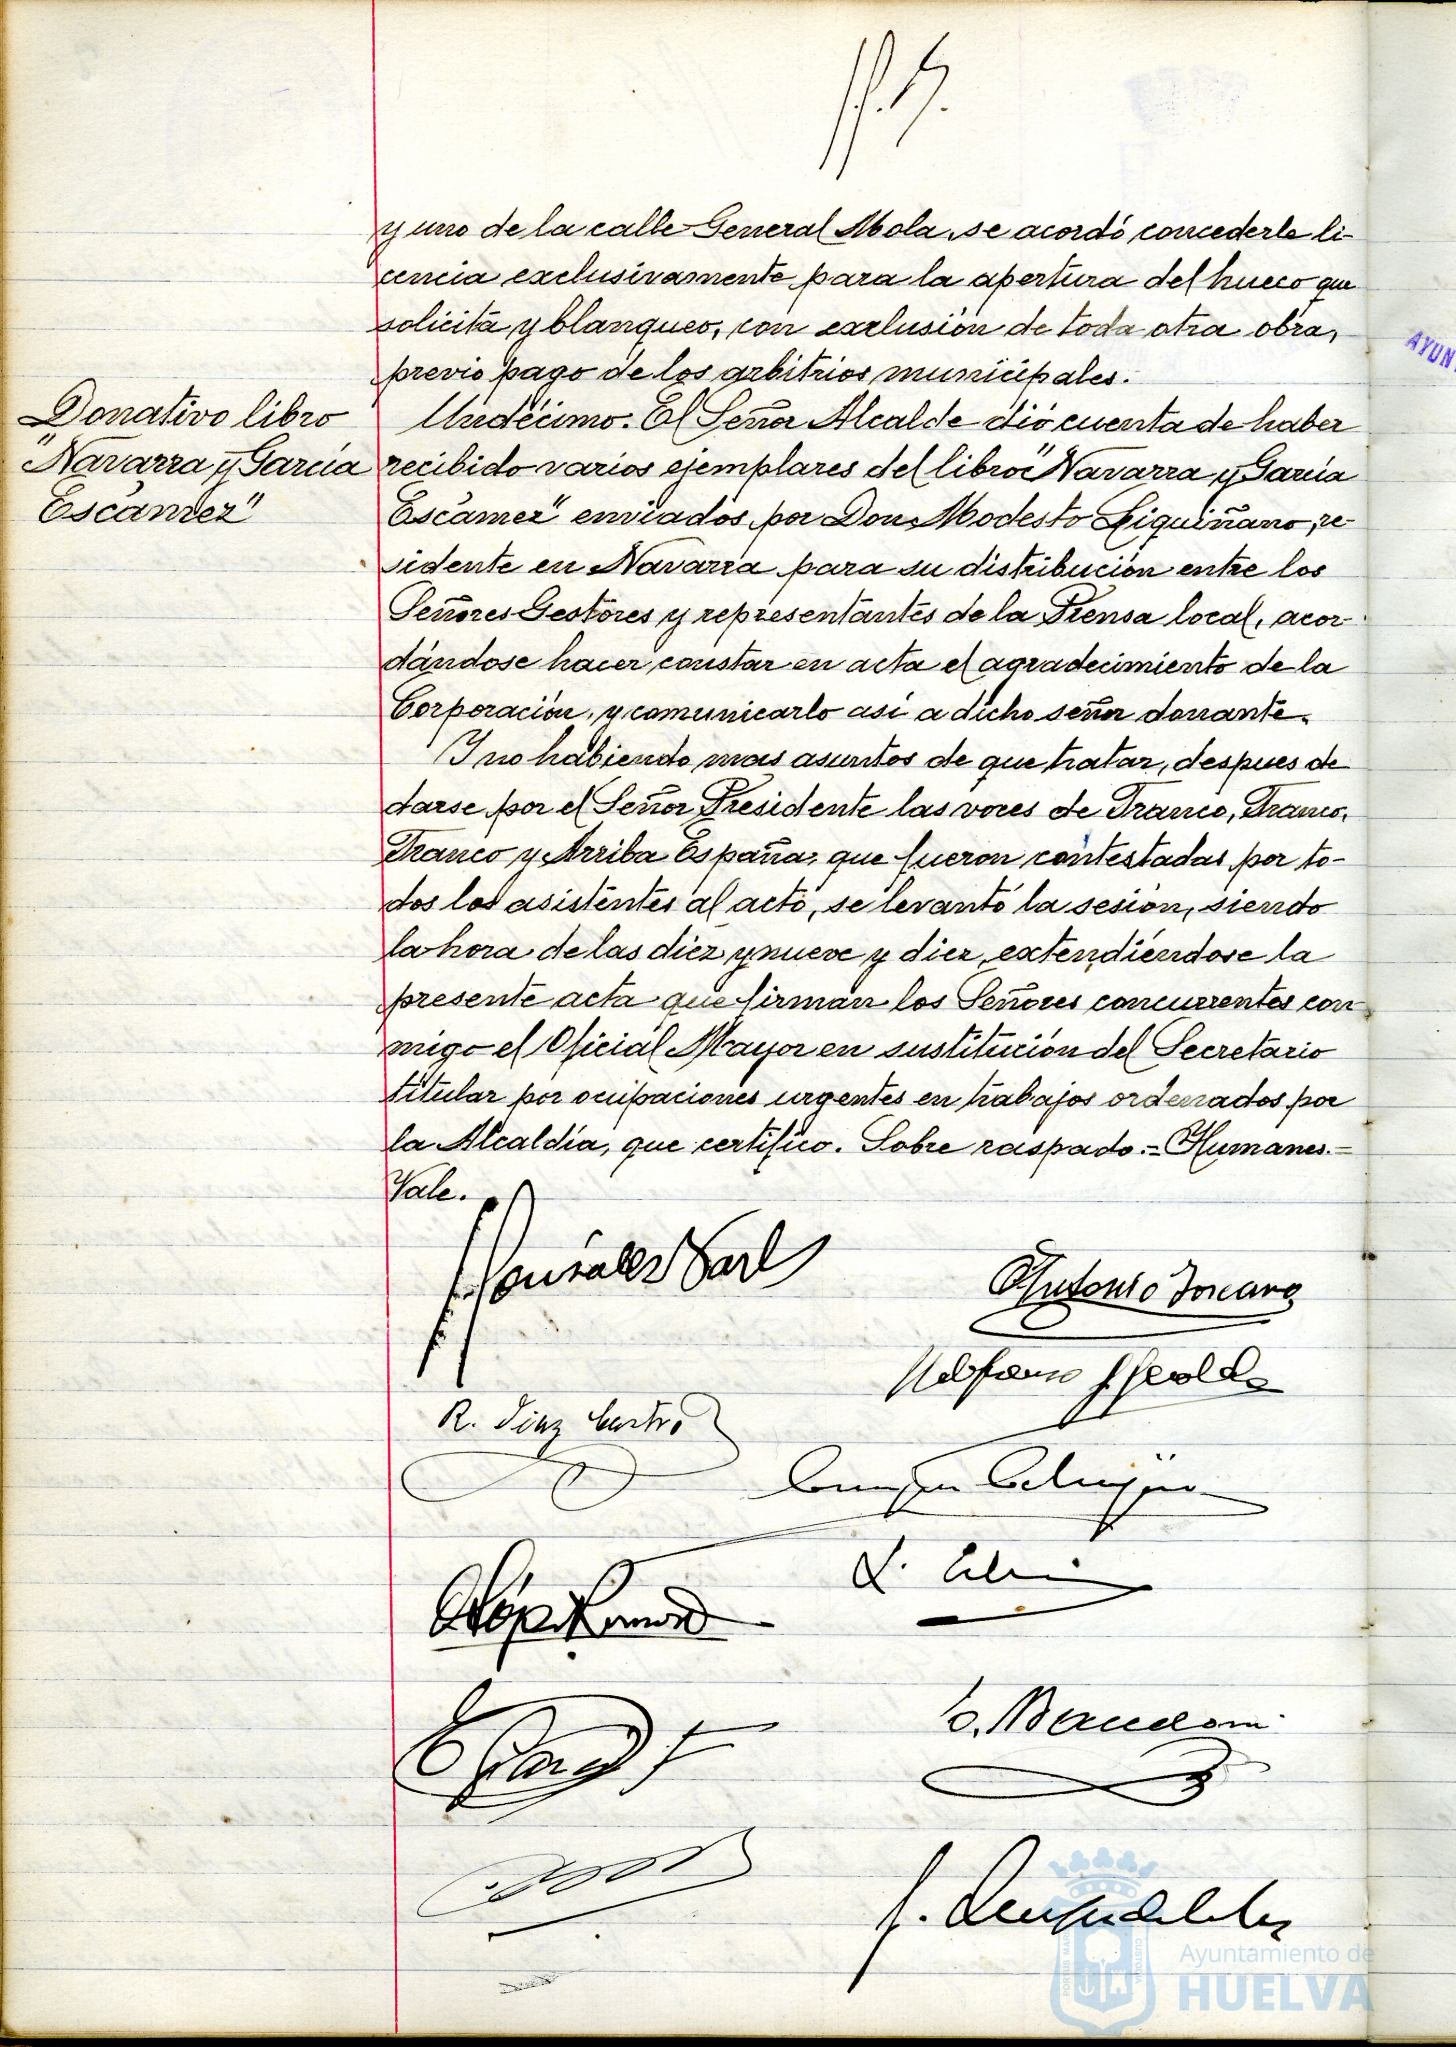 y uno de la calle General Mola, se acordó concederle li-
cencia exclusivamente para la apertura del hueco que
solicita y blanqueo, con exclusión de toda otra obra,
previo pago de los arbitrios municipales.
Donativo libro
"Navarra y García
Escámez"
Undécimo. El Señor Alcalde dió cuenta de haber
recibido varios ejemplares del libro "Navarra y García
Escámez" enviados por Don Modesto Liquiñano, re-
sidente en Navarra para su distribución entre los
Señores Gestores y representantes de la Prensa local, acor-
dándose hacer constar en acta el agradecimiento de la
Corporación, y comunicarlo asi a dicho señor donante.
Y no habiendo mas asuntos de que tratar, despues de
darse por el Señor Presidente las voces de Franco, Franco,
Franco y Arriba España, que fueron contestadas por to-
dos los asistentes al acto, se levantó la sesión, siendo
la hora de las diez y nueve y diez, extendiéndose la
presente acta que firman los Señores concurrentes con
migo el Oficial Mayor en sustitución del Secretario
titular por ocupaciones urgentes en trabajos ordenados por
la Alcaldía, que certifico. Sobre raspado.= Humanes.=
Vale.
Antonio Toscano
R. Diaz Castro
AYUN
Ayuntamiento de
HUELVA